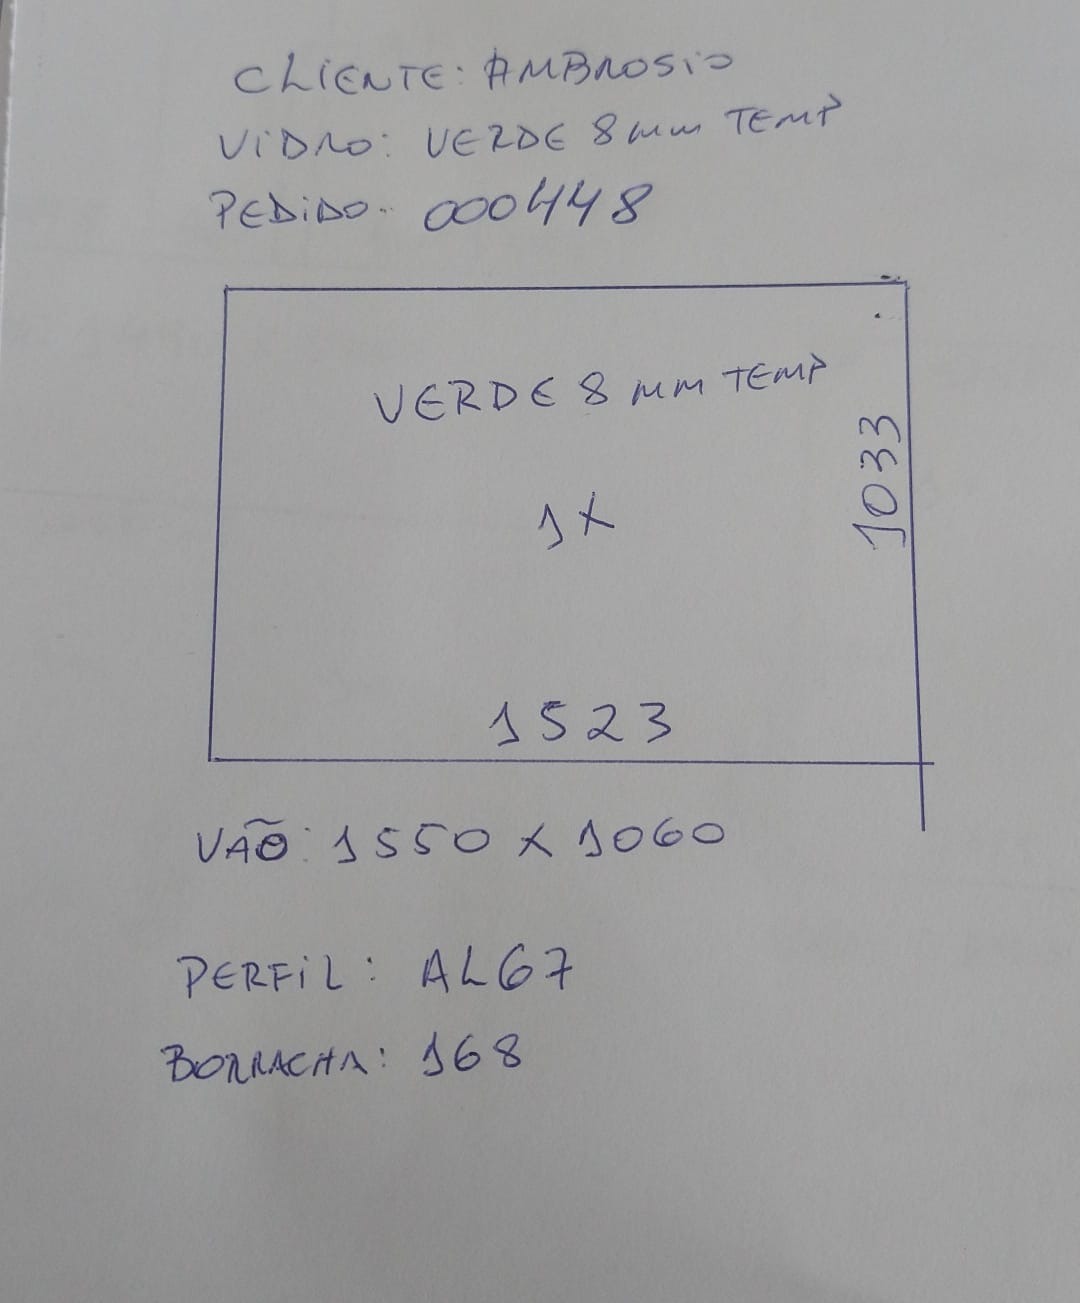 CLIENTE: AMBROSIO
VIDRO: VERDE 8 mm TEMP
PEDIDO: 000448
VERDE 8 mm TEMP
1033
1X
1523
VÃO: 1550 X 1060
PERFIL: AL67
BORRACHA: 168